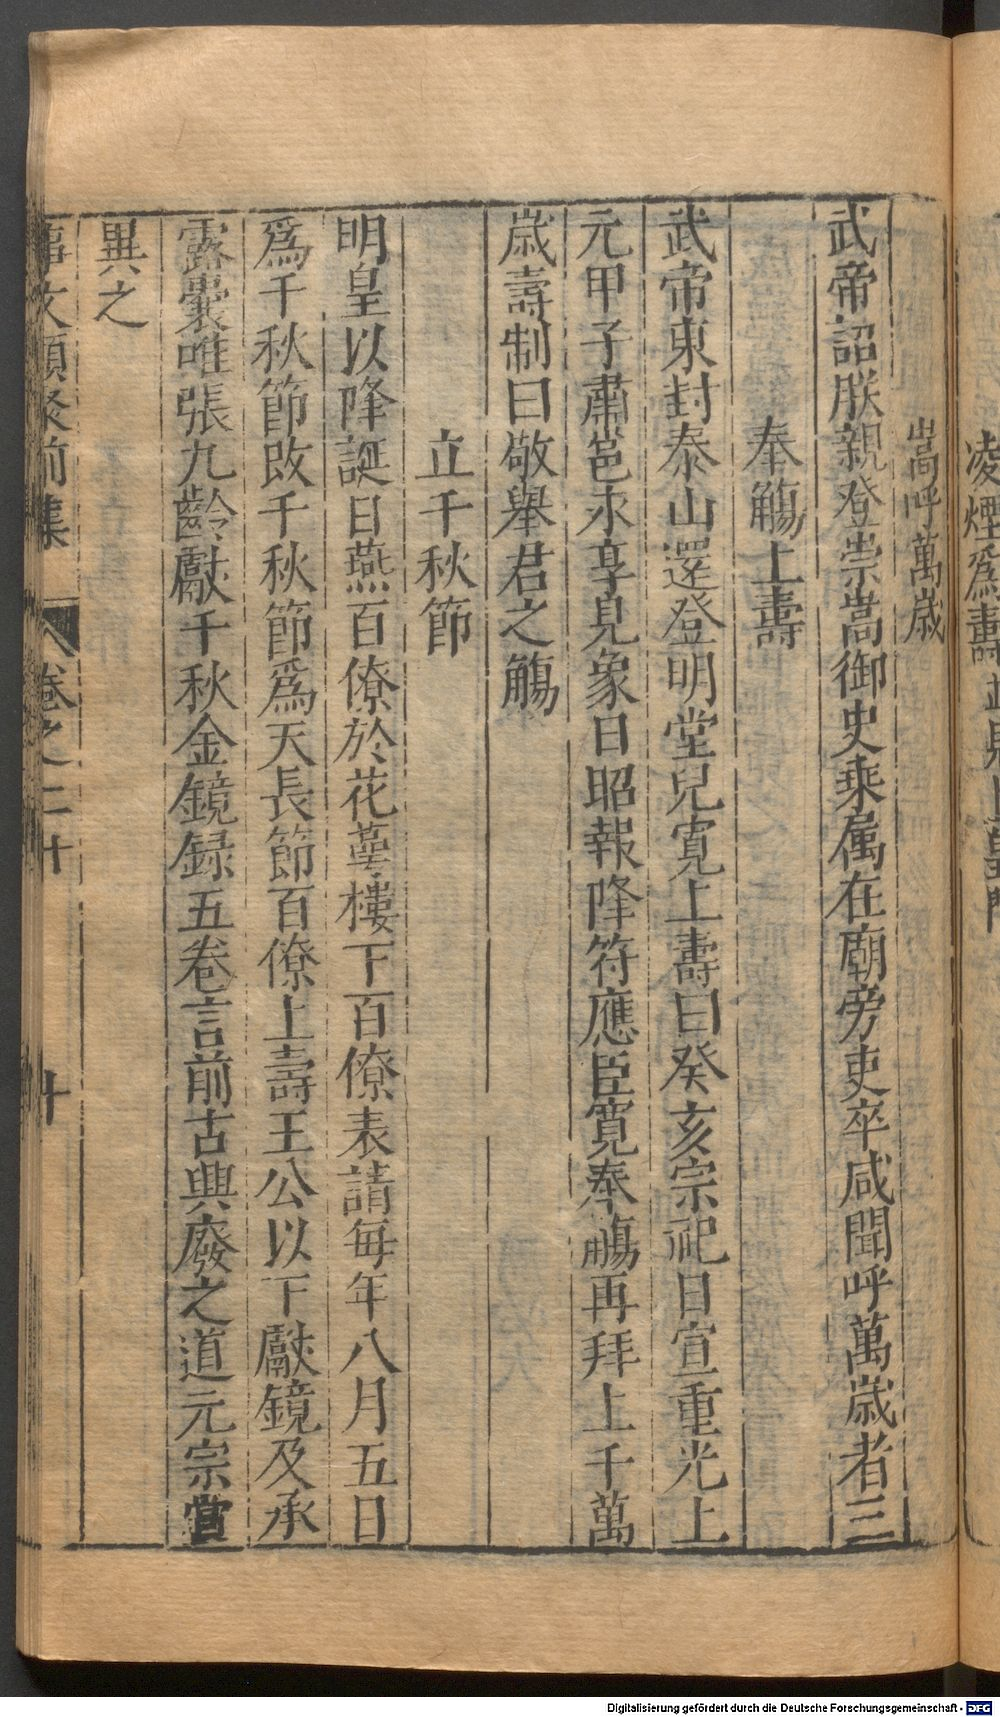 凌煙爲壽
嵩呼萬歲
武帝詔朕親登崇嵩御史乘属在廟旁吏卒咸聞呼萬歲者三
奉觴上壽
武帝東封泰山還登明堂兒寬上壽曰癸亥宗祀日宣重光上
元甲子肅邕永享見象日昭報降符應臣寬奉觴再拜上千萬
歲壽制曰敬舉君之觴
立千秋節
明皇以降誕日燕百僚於花萼樓下百僚表請每年八月五日
爲千秋節改千秋節爲天長節百僚上壽王公以下獻鏡及承
露囊唯張九齡獻千秋金鏡録五卷言前古興廢之道元宗賞
異之
事文類聚前集 卷之二十 十
Digitalisierung gefördert durch die Deutsche Forschungsgemeinschaft - DFG